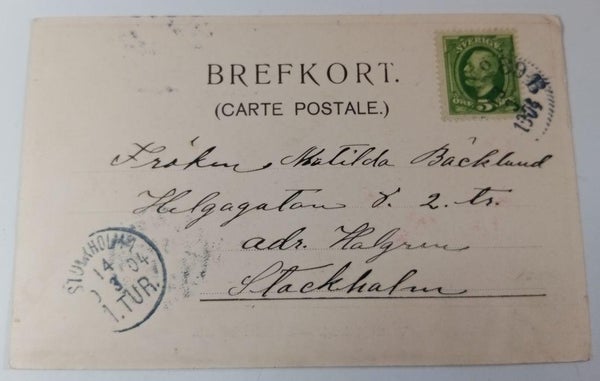 BREFKORT.
(CARTE POSTALE.)
SVERIGE
ÖRE 5
Fröken Matilda Bäcklund
Helgagatan 8. 2. tr.
adr. Halgren
Stockholm
STOCKHOLM
14
3 04
1.TUR.